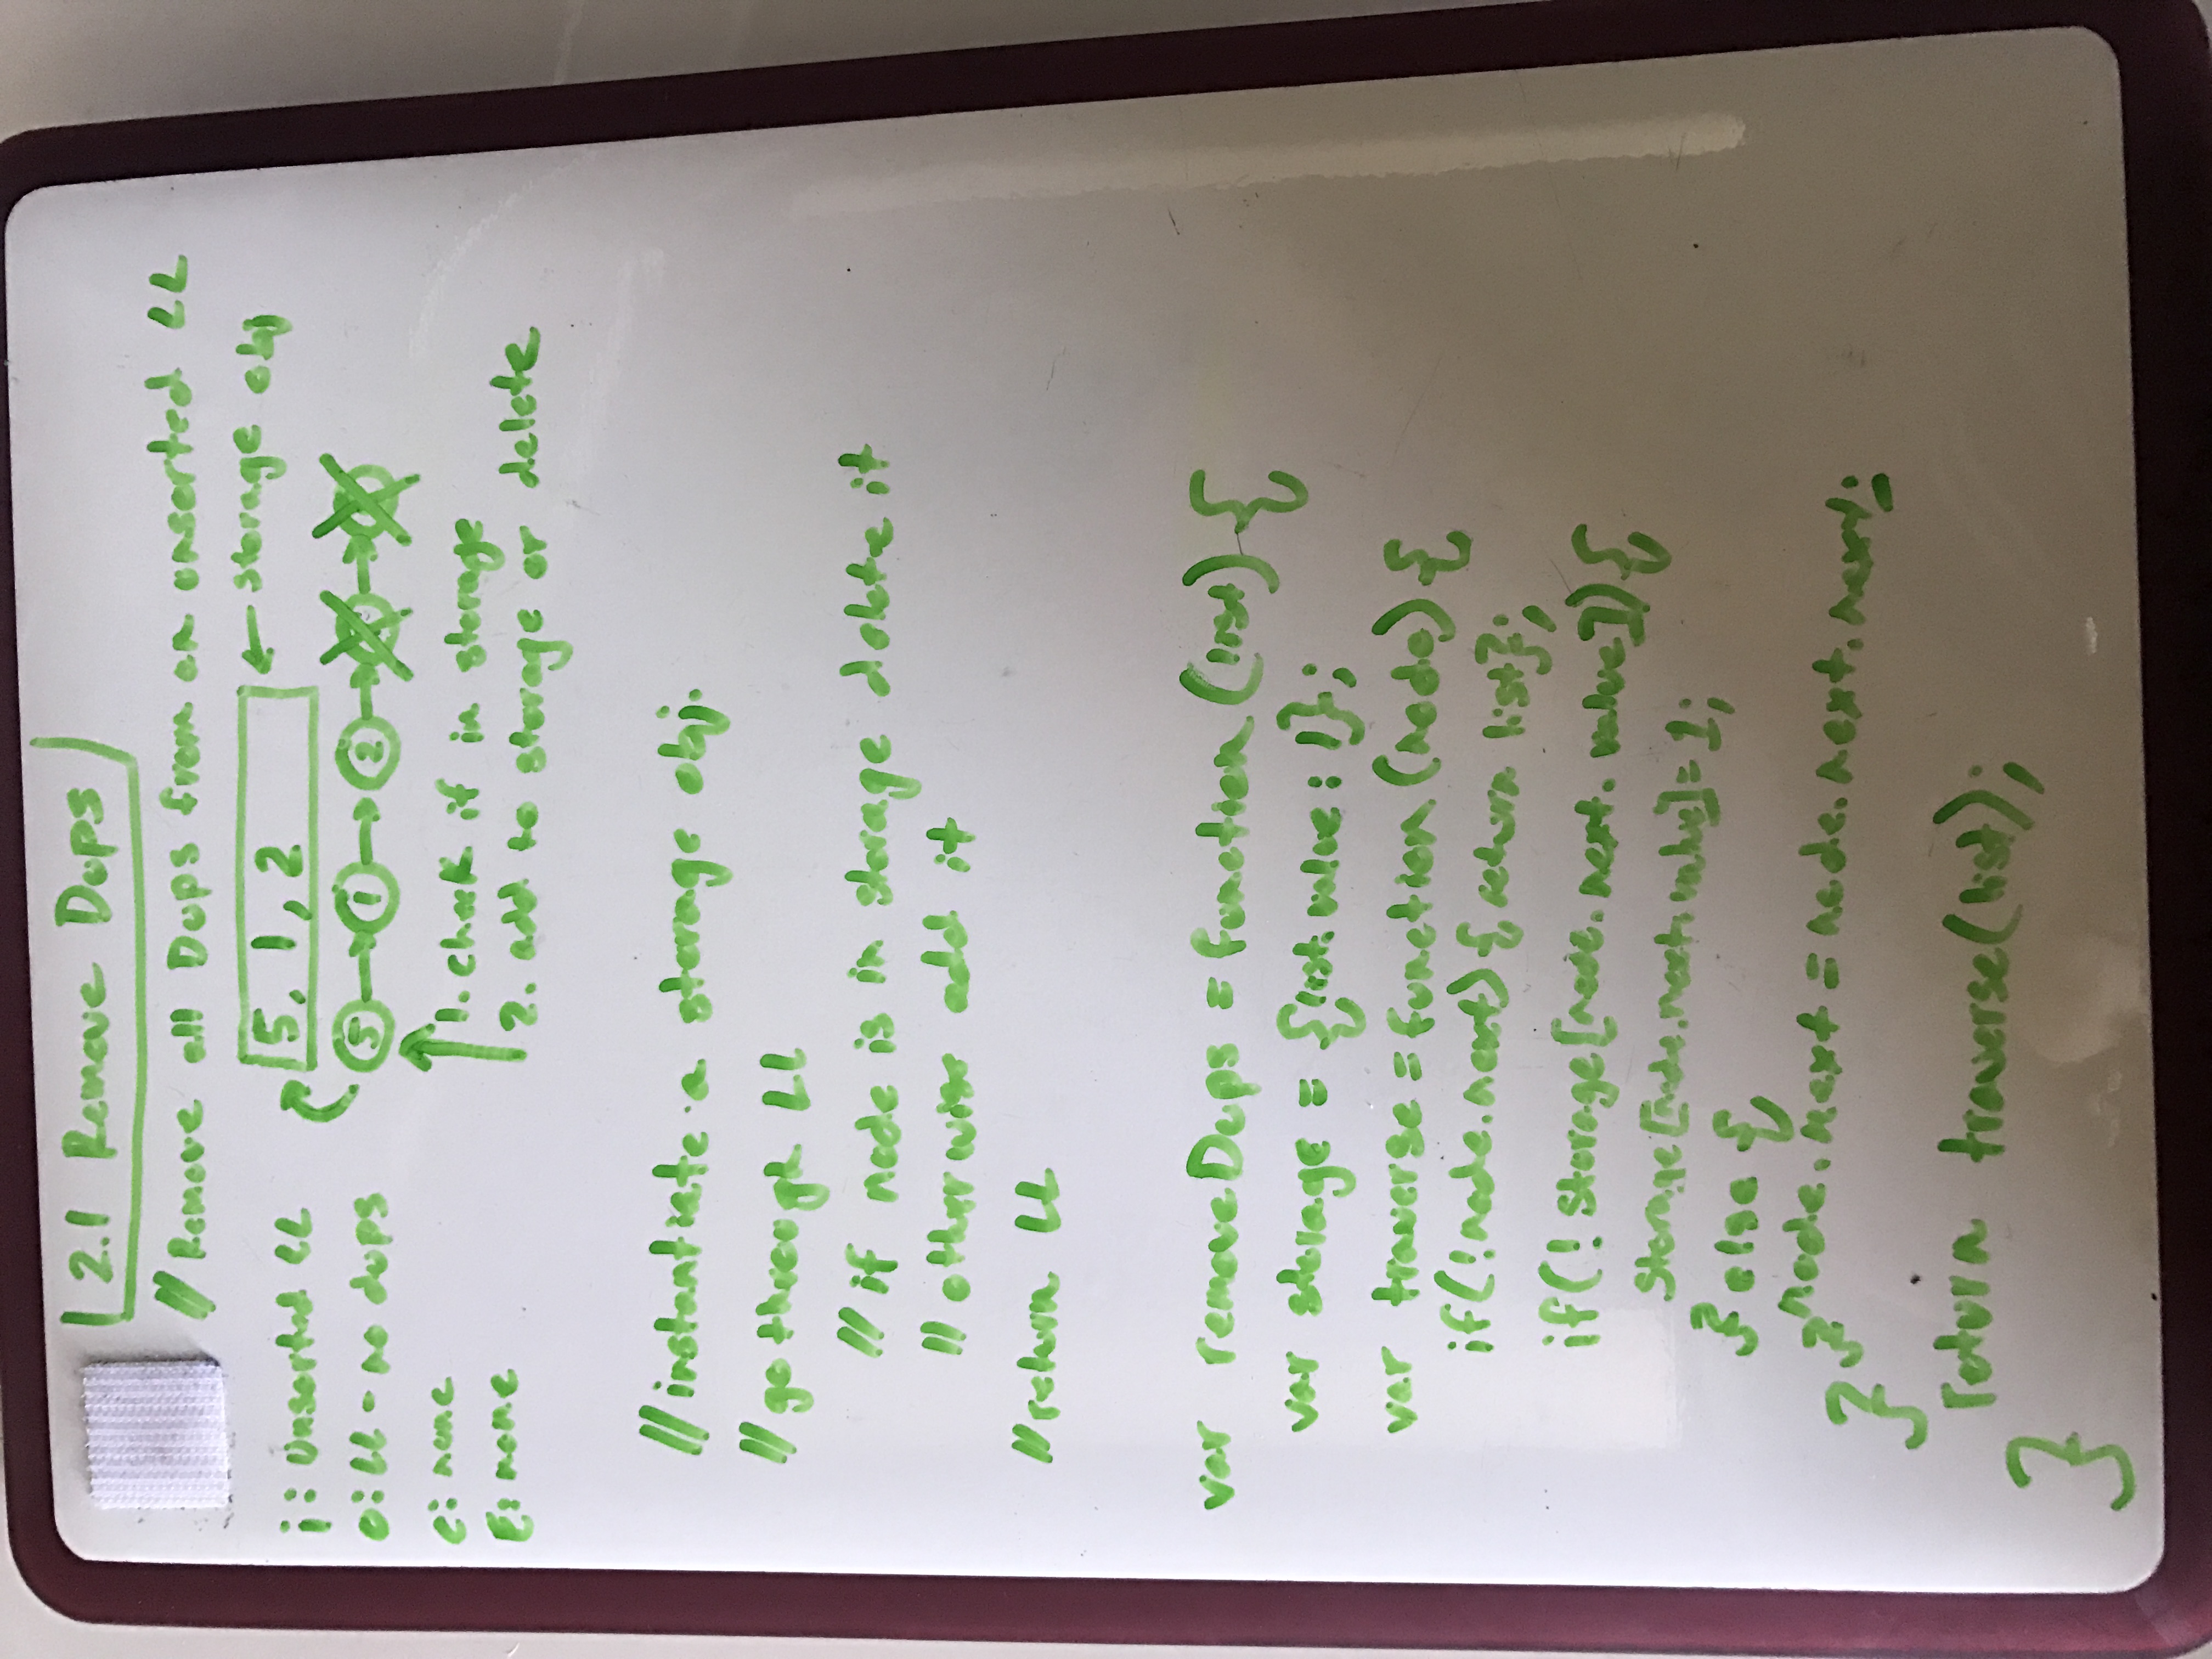 2.1 Remove Dups
// Remove all Dups from an unsorted LL
5, 1, 2 ← storage obj
i: Unsorted LL
o: LL - no dups
c: none
E: none
5 → 1 → 2 → →
1. check if in storage
2. add to storage or delete
// instantiate a storage obj.
// go through LL
// if node is in storage delete it
// otherwise add it
// return LL
var removeDups = function (list) {
var storage = {list.value : 1};
var traverse = function (node) {
if(!node.next) { return list};
if(! storage[node.next.value]) {
Storage[node.next.value] = 1;
} else {
node.next = node.next.next;
}
}
return traverse(list);
}